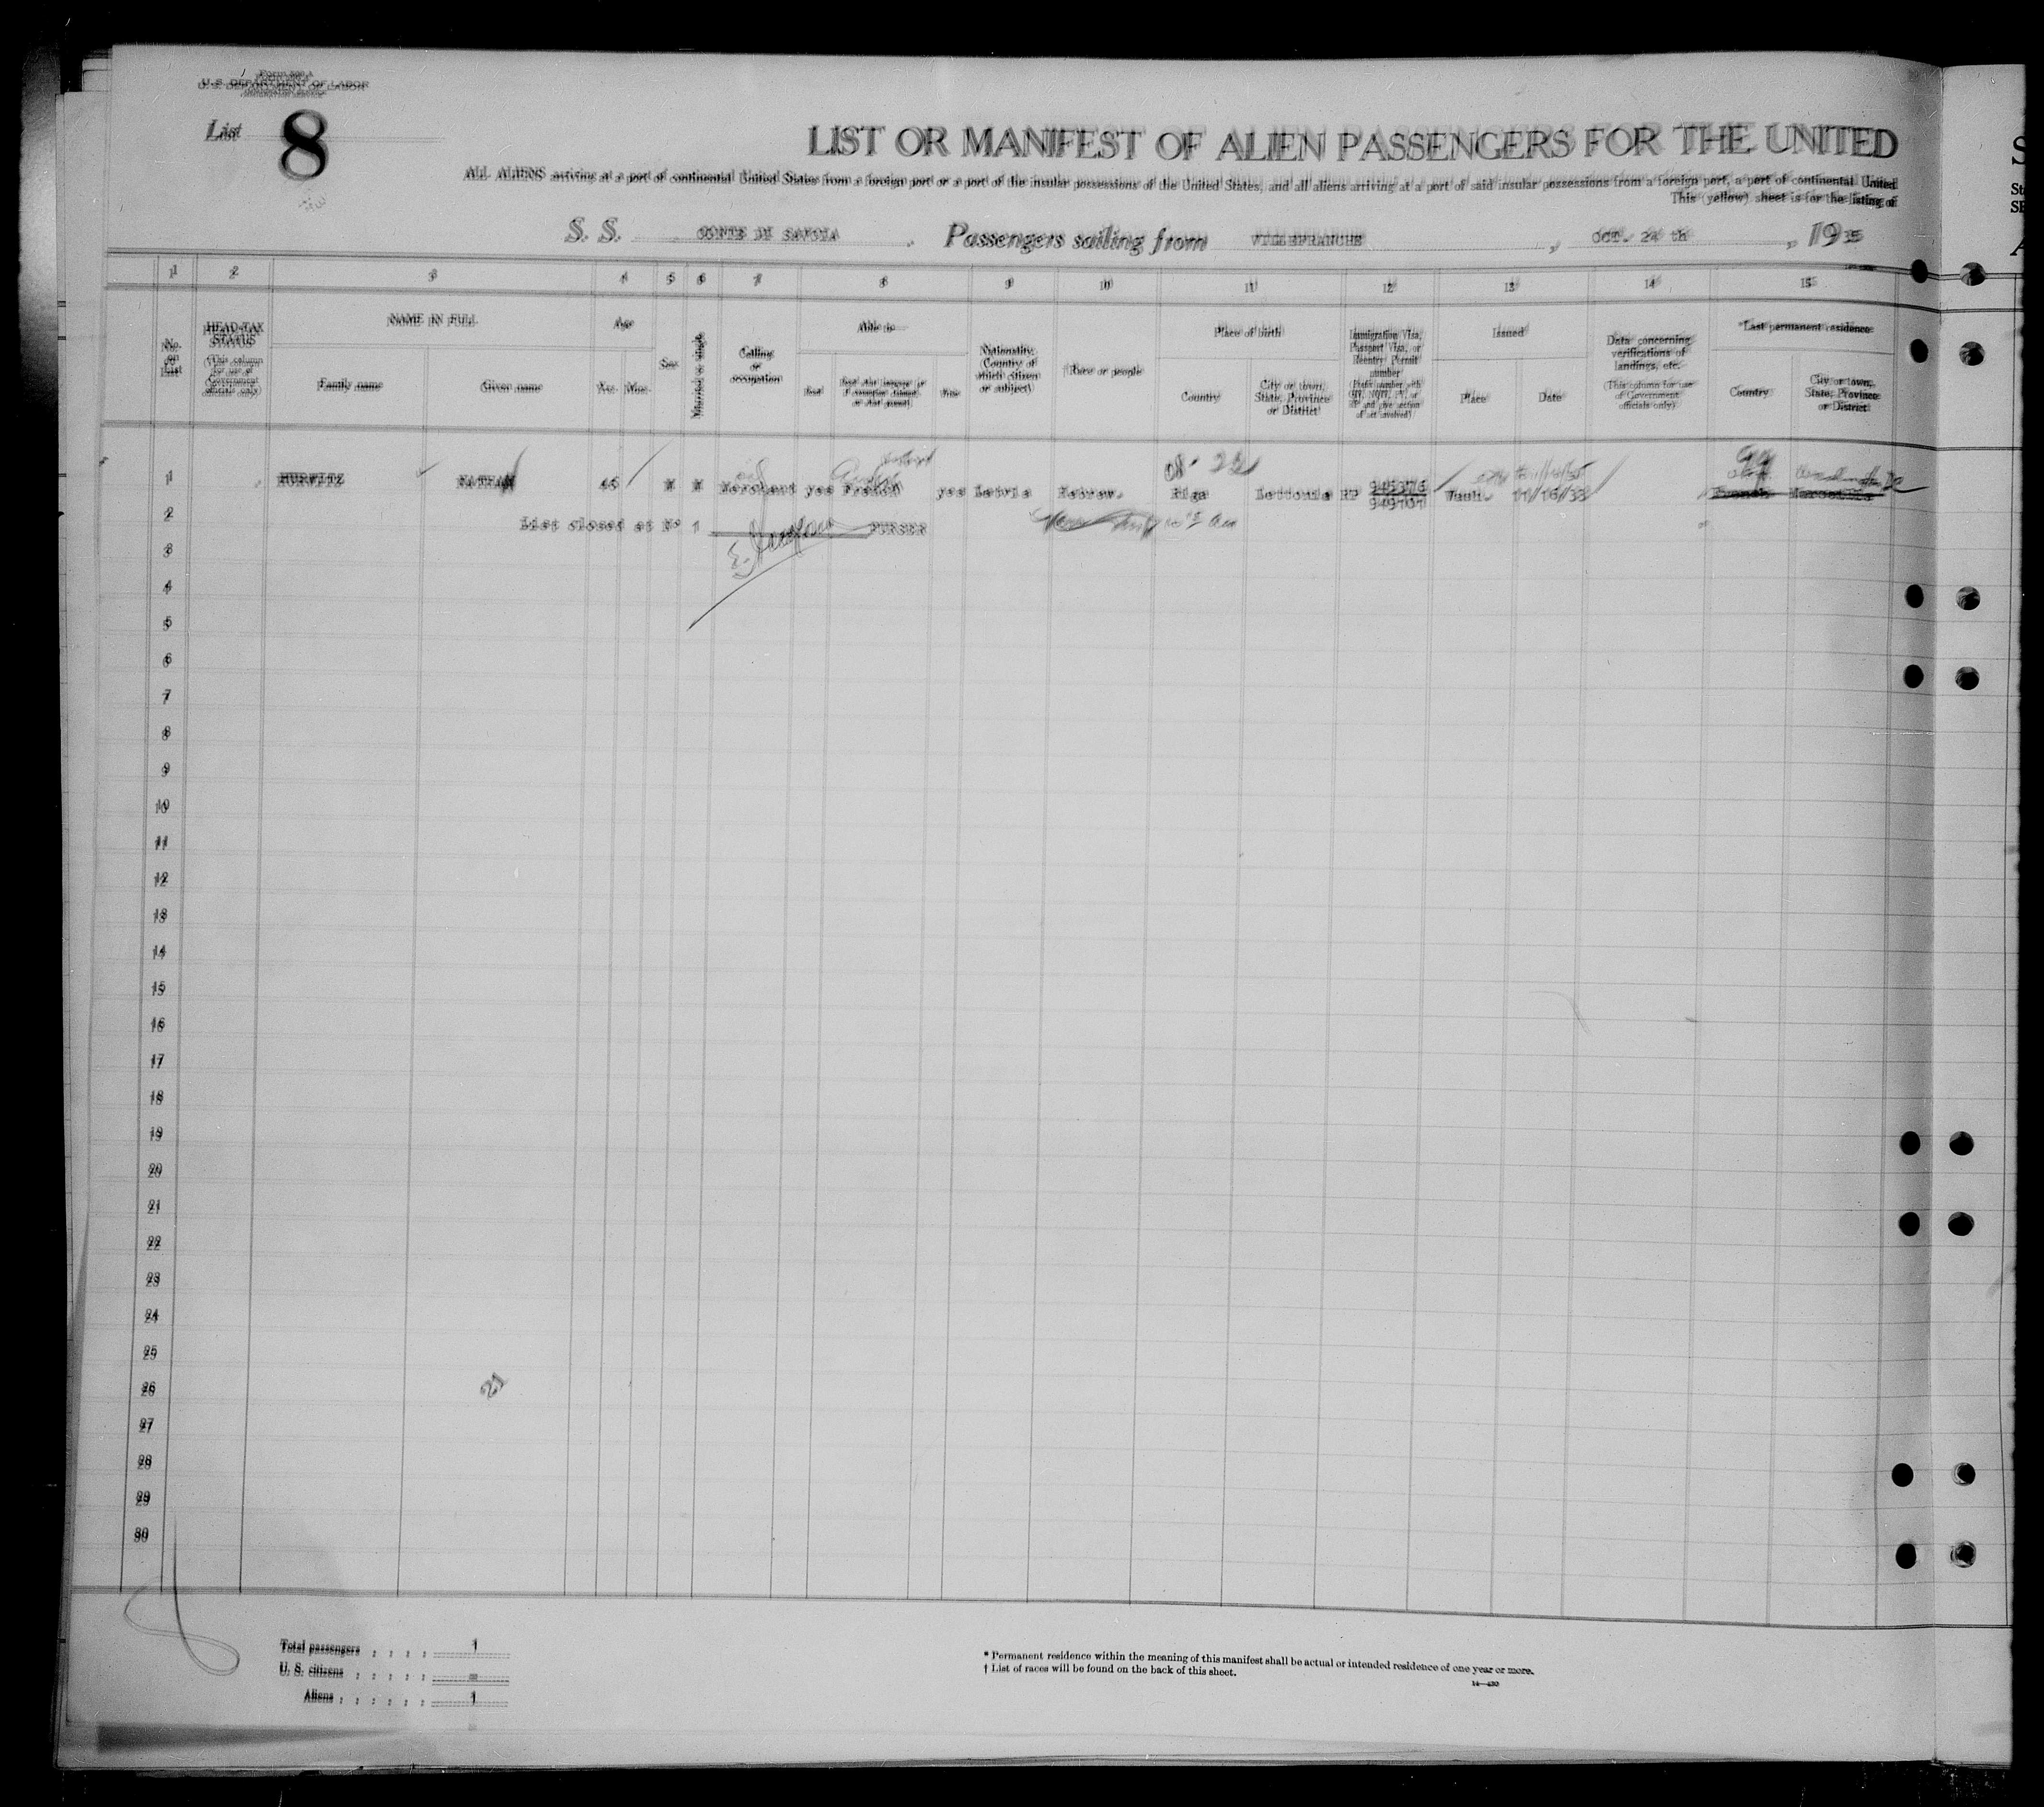 Form 500 A
U. S. DEPARTMENT OF LABOR
IMMIGRATION SERVICE
List 8
LIST OR MANIFEST OF ALIEN PASSENGERS FOR THE UNITED
ALL ALIENS arriving at a port of continental United States from a foreign port or a port of the insular possessions of the United States, and all aliens arriving at a port of said insular possessions from a foreign port, a port of continental United
This (yellow) sheet is for the listing of
S. S. CONTE DI SAVOIA . Passengers sailing from VILLEFRANCHE , OCT. 24 th , 1935
1 2 3 4 5 6 7 8 9 10 11 12 13 14 15
No. on List
HEAD-TAX STATUS (This column for use of Government officials only)
NAME IN FULL
Family name
Given name
Age
Yrs. Mos.
Sex
Married or single
Calling or occupation
Able to—
Read
Read what language or, if exemption claimed, on what ground
Write
Nationality. (Country of which citizen or subject)
†Race or people
Place of birth
Country
City or town, State, Province or District
Immigration Visa, Passport Visa, or Reentry Permit number
(Prefix number with QIV, NQIV, PV, or RP and give section of act involved)
Issued
Place
Date
Data concerning verifications of landings, etc.
(This column for use of Government officials only)
*Last permanent residence
Country
City or town, State, Province or District
1 HURWITZ NATHAN 45 M M Merchant yes French yes Latvia Hebrew. Riga Lettonia RP 945376 949101 Wash. 11/16/33 French Marseille
2 List closed at N° 1 PURSER
3
4
5
6
7
8
9
10
11
12
13
14
15
16
17
18
19
20
21
22
23
24
25
26
27
28
29
30
21
Total passengers 1
U. S. citizens =
Aliens 1
* Permanent residence within the meaning of this manifest shall be actual or intended residence of one year or more.
† List of races will be found on the back of this sheet.
14—430